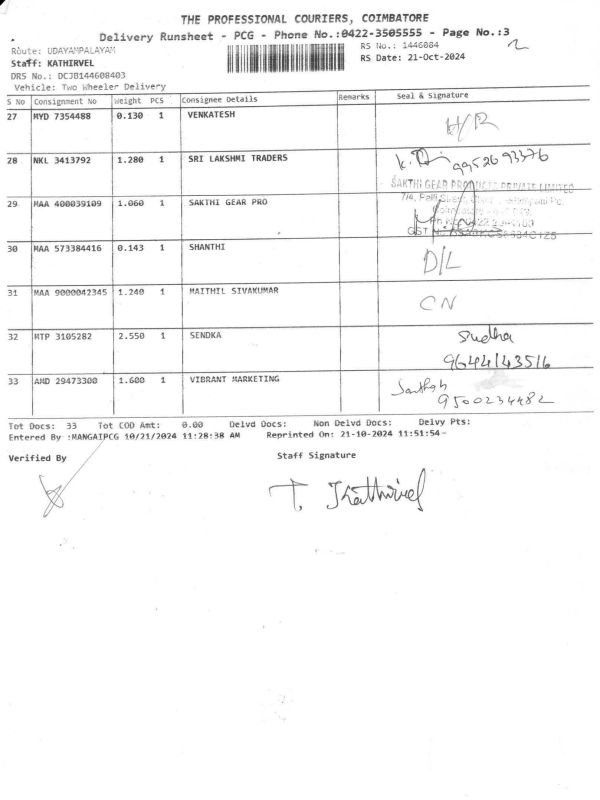 THE PROFESSIONAL COURIERS, COIMBATORE
Delivery Runsheet - PCG - Phone No.:0422-3505555 - Page No.:3
Route: UDAYAMPALAYAM
RS No.: 1446084
2
Staff: KATHIRVEL
RS Date: 21-Oct-2024
DRS No.: DCJB144608403
Vehicle: Two Wheeler Delivery
S No Consignment No Weight PCS Consignee Details Remarks Seal & Signature
27 MYD 7354488 0.130 1 VENKATESH
H/R
28 NKL 3413792 1.280 1 SRI LAKSHMI TRADERS
9952693376
SAKTHI GEAR PRODUCTS PRIVATE LIMITED
29 MAA 400039109 1.060 1 SAKTHI GEAR PRO
30 MAA 573384416 0.143 1 SHANTHI
D/L
31 MAA 9000042345 1.240 1 MAITHIL SIVAKUMAR
CN
32 MTP 3105282 2.550 1 SENDKA
Sudha
9644143516
33 AMD 29473300 1.600 1 VIBRANT MARKETING
Santhosh
9500234482
Tot Docs: 33 Tot COD Amt: 0.00 Delvd Docs: Non Delvd Docs: Delvy Pts:
Entered By :MANGAIPCG 10/21/2024 11:28:38 AM Reprinted On: 21-10-2024 11:51:54
Verified By
Staff Signature
T. Kathirvel